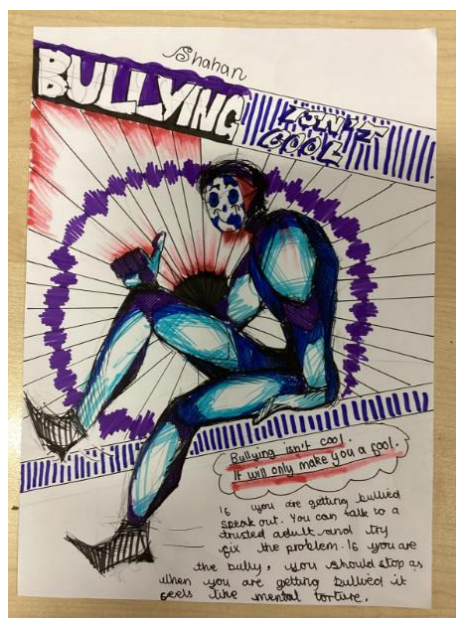 Shahan
BULLYING
ISN'T
COOL
Bullying isn't cool.
It will only make you a fool.
If you are getting bullied
speak out. You can talk to a
trusted adult and try
fix the problem. If you are
the bully, you should stop as
when you are getting bullied it
feels like mental torture.